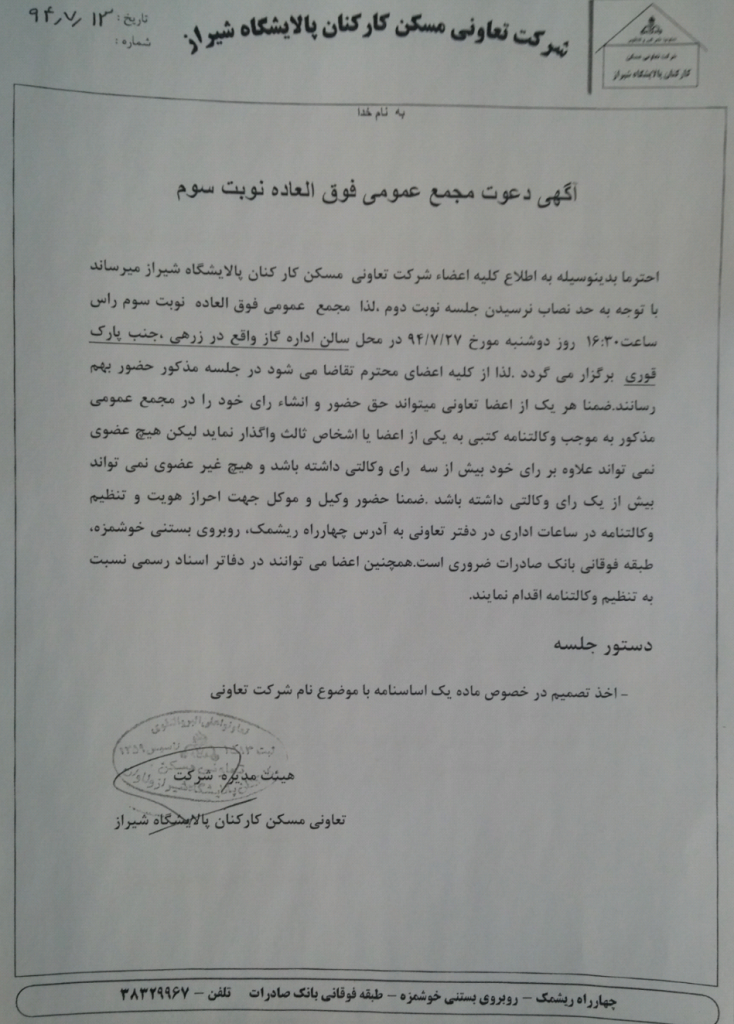 شرکت تعاونی مسکن کارکنان پالایشگاه شیراز
تاریخ: ۹۴٫۷٫۱۳
شماره:
شرکت تعاونی مسکن
کارکنان پالایشگاه شیراز
به نام خدا
آگهی دعوت مجمع عمومی فوق العاده نوبت سوم
احترما بدینوسیله به اطلاع کلیه اعضاء شرکت تعاونی مسکن کار کنان پالایشگاه شیراز میرساند
با توجه به حد نصاب نرسیدن جلسه نوبت دوم ،لذا مجمع عمومی فوق العاده نوبت سوم راس
ساعت۱۶:۳۰ روز دوشنبه مورخ ۹۴/۷/۲۷ در محل سالن اداره گاز واقع در زرهی ،جنب پارک
قوری برگزار می گردد .لذا از کلیه اعضای محترم تقاضا می شود در جلسه مذکور حضور بهم
رسانند.ضمنا هر یک از اعضا تعاونی میتواند حق حضور و انشاء رای خود را در مجمع عمومی
مذکور به موجب وکالتنامه کتبی به یکی از اعضا یا اشخاص ثالث واگذار نماید لیکن هیچ عضوی
نمی تواند علاوه بر رای خود بیش از سه رای وکالتی داشته باشد و هیچ غیر عضوی نمی تواند
بیش از یک رای وکالتی داشته باشد .ضمنا حضور وکیل و موکل جهت احراز هویت و تنظیم
وکالتنامه در ساعات اداری در دفتر تعاونی به آدرس چهارراه ریشمک، روبروی بستنی خوشمزه،
طبقه فوقانی بانک صادرات ضروری است.همچنین اعضا می توانند در دفاتر اسناد رسمی نسبت
به تنظیم وکالتنامه اقدام نمایند.
دستور جلسه
- اخذ تصمیم در خصوص ماده یک اساسنامه با موضوع نام شرکت تعاونی
هیئت مدیره شرکت
تعاونی مسکن کارکنان پالایشگاه شیراز
چهارراه ریشمک – روبروی بستنی خوشمزه – طبقه فوقانی بانک صادرات تلفن – ۳۸۳۲۹۹۶۷